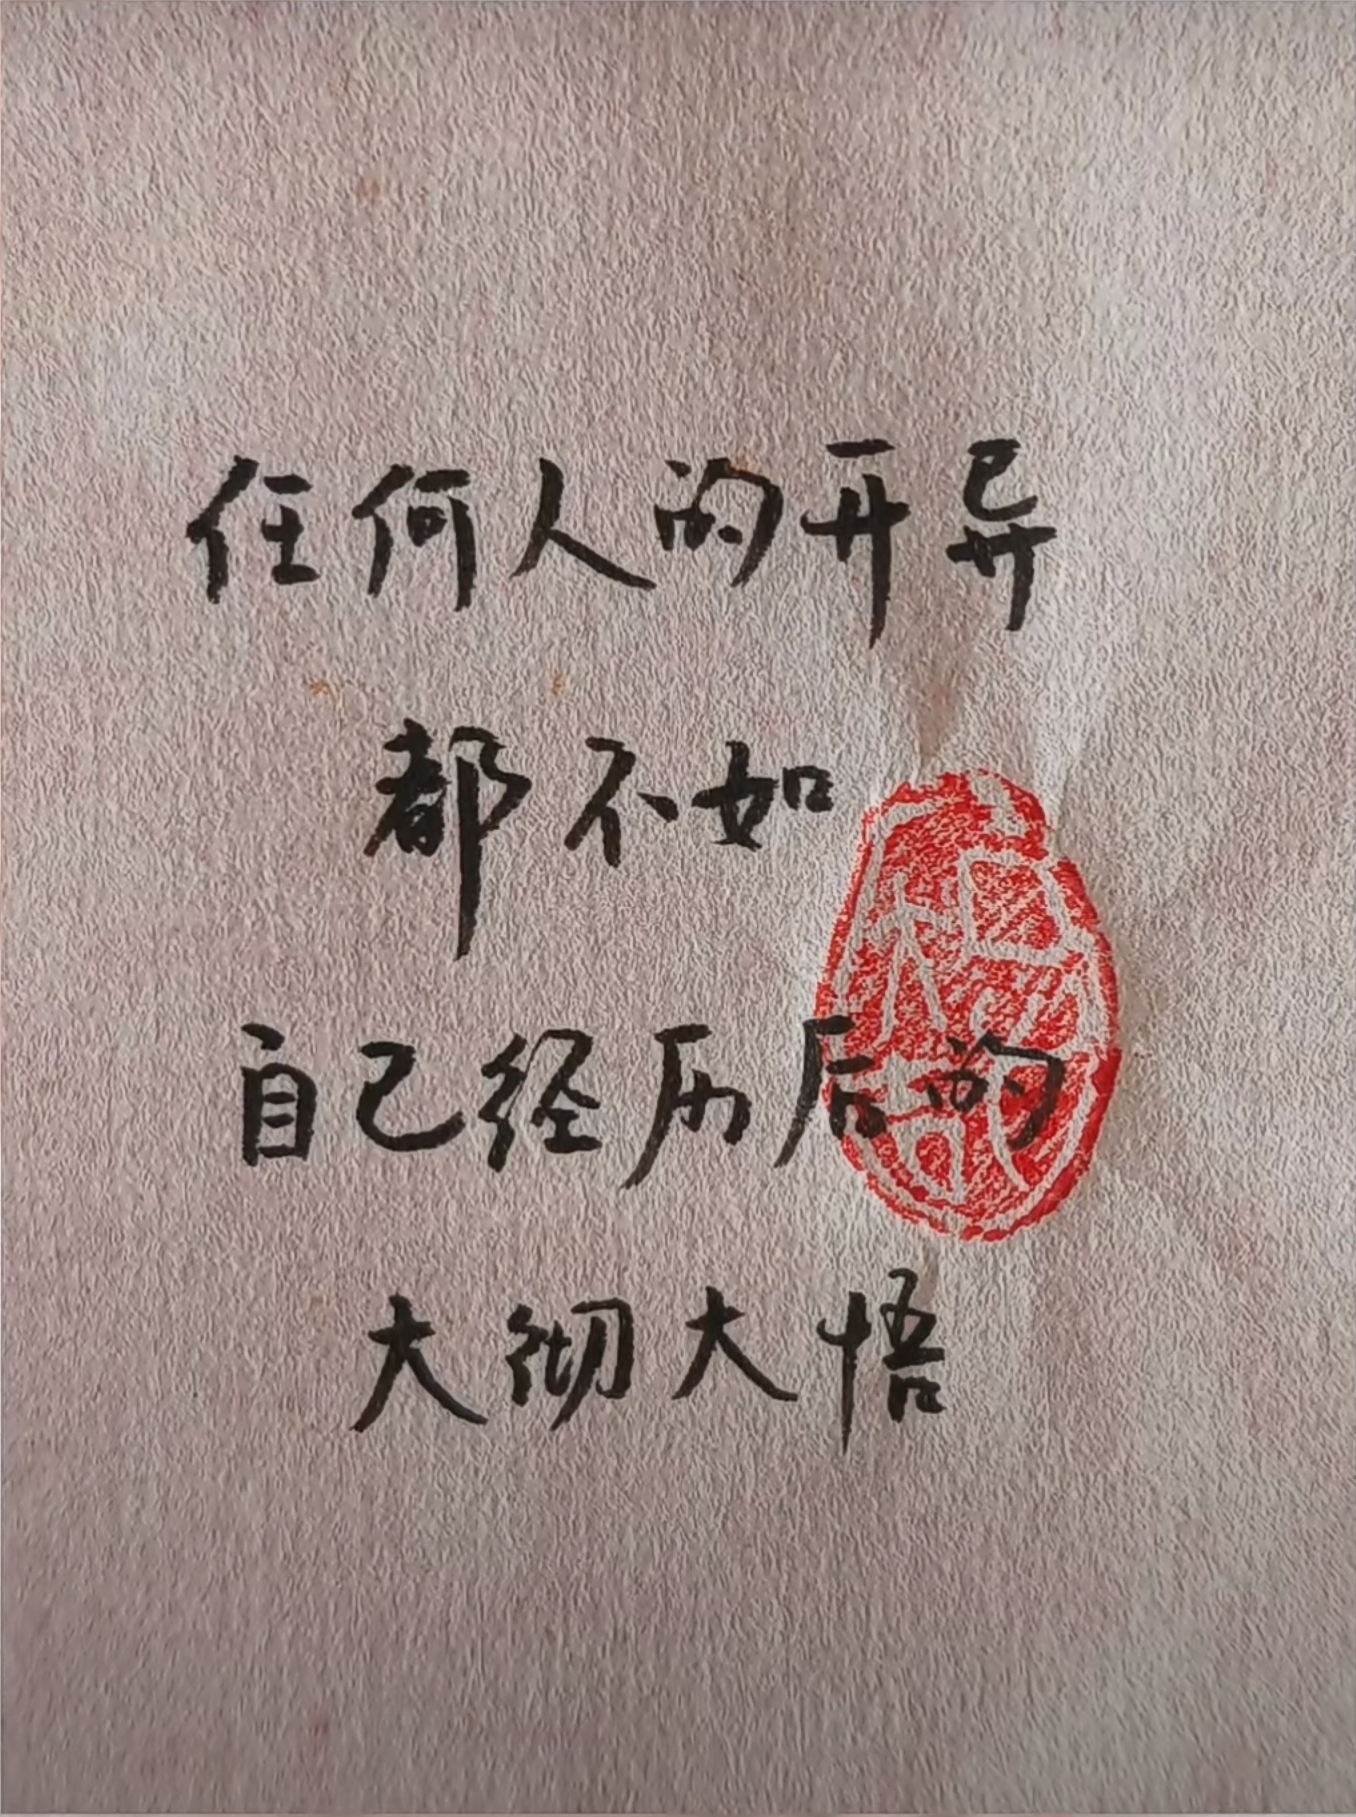 任何人的开导
都不如
自己经历后的
大彻大悟